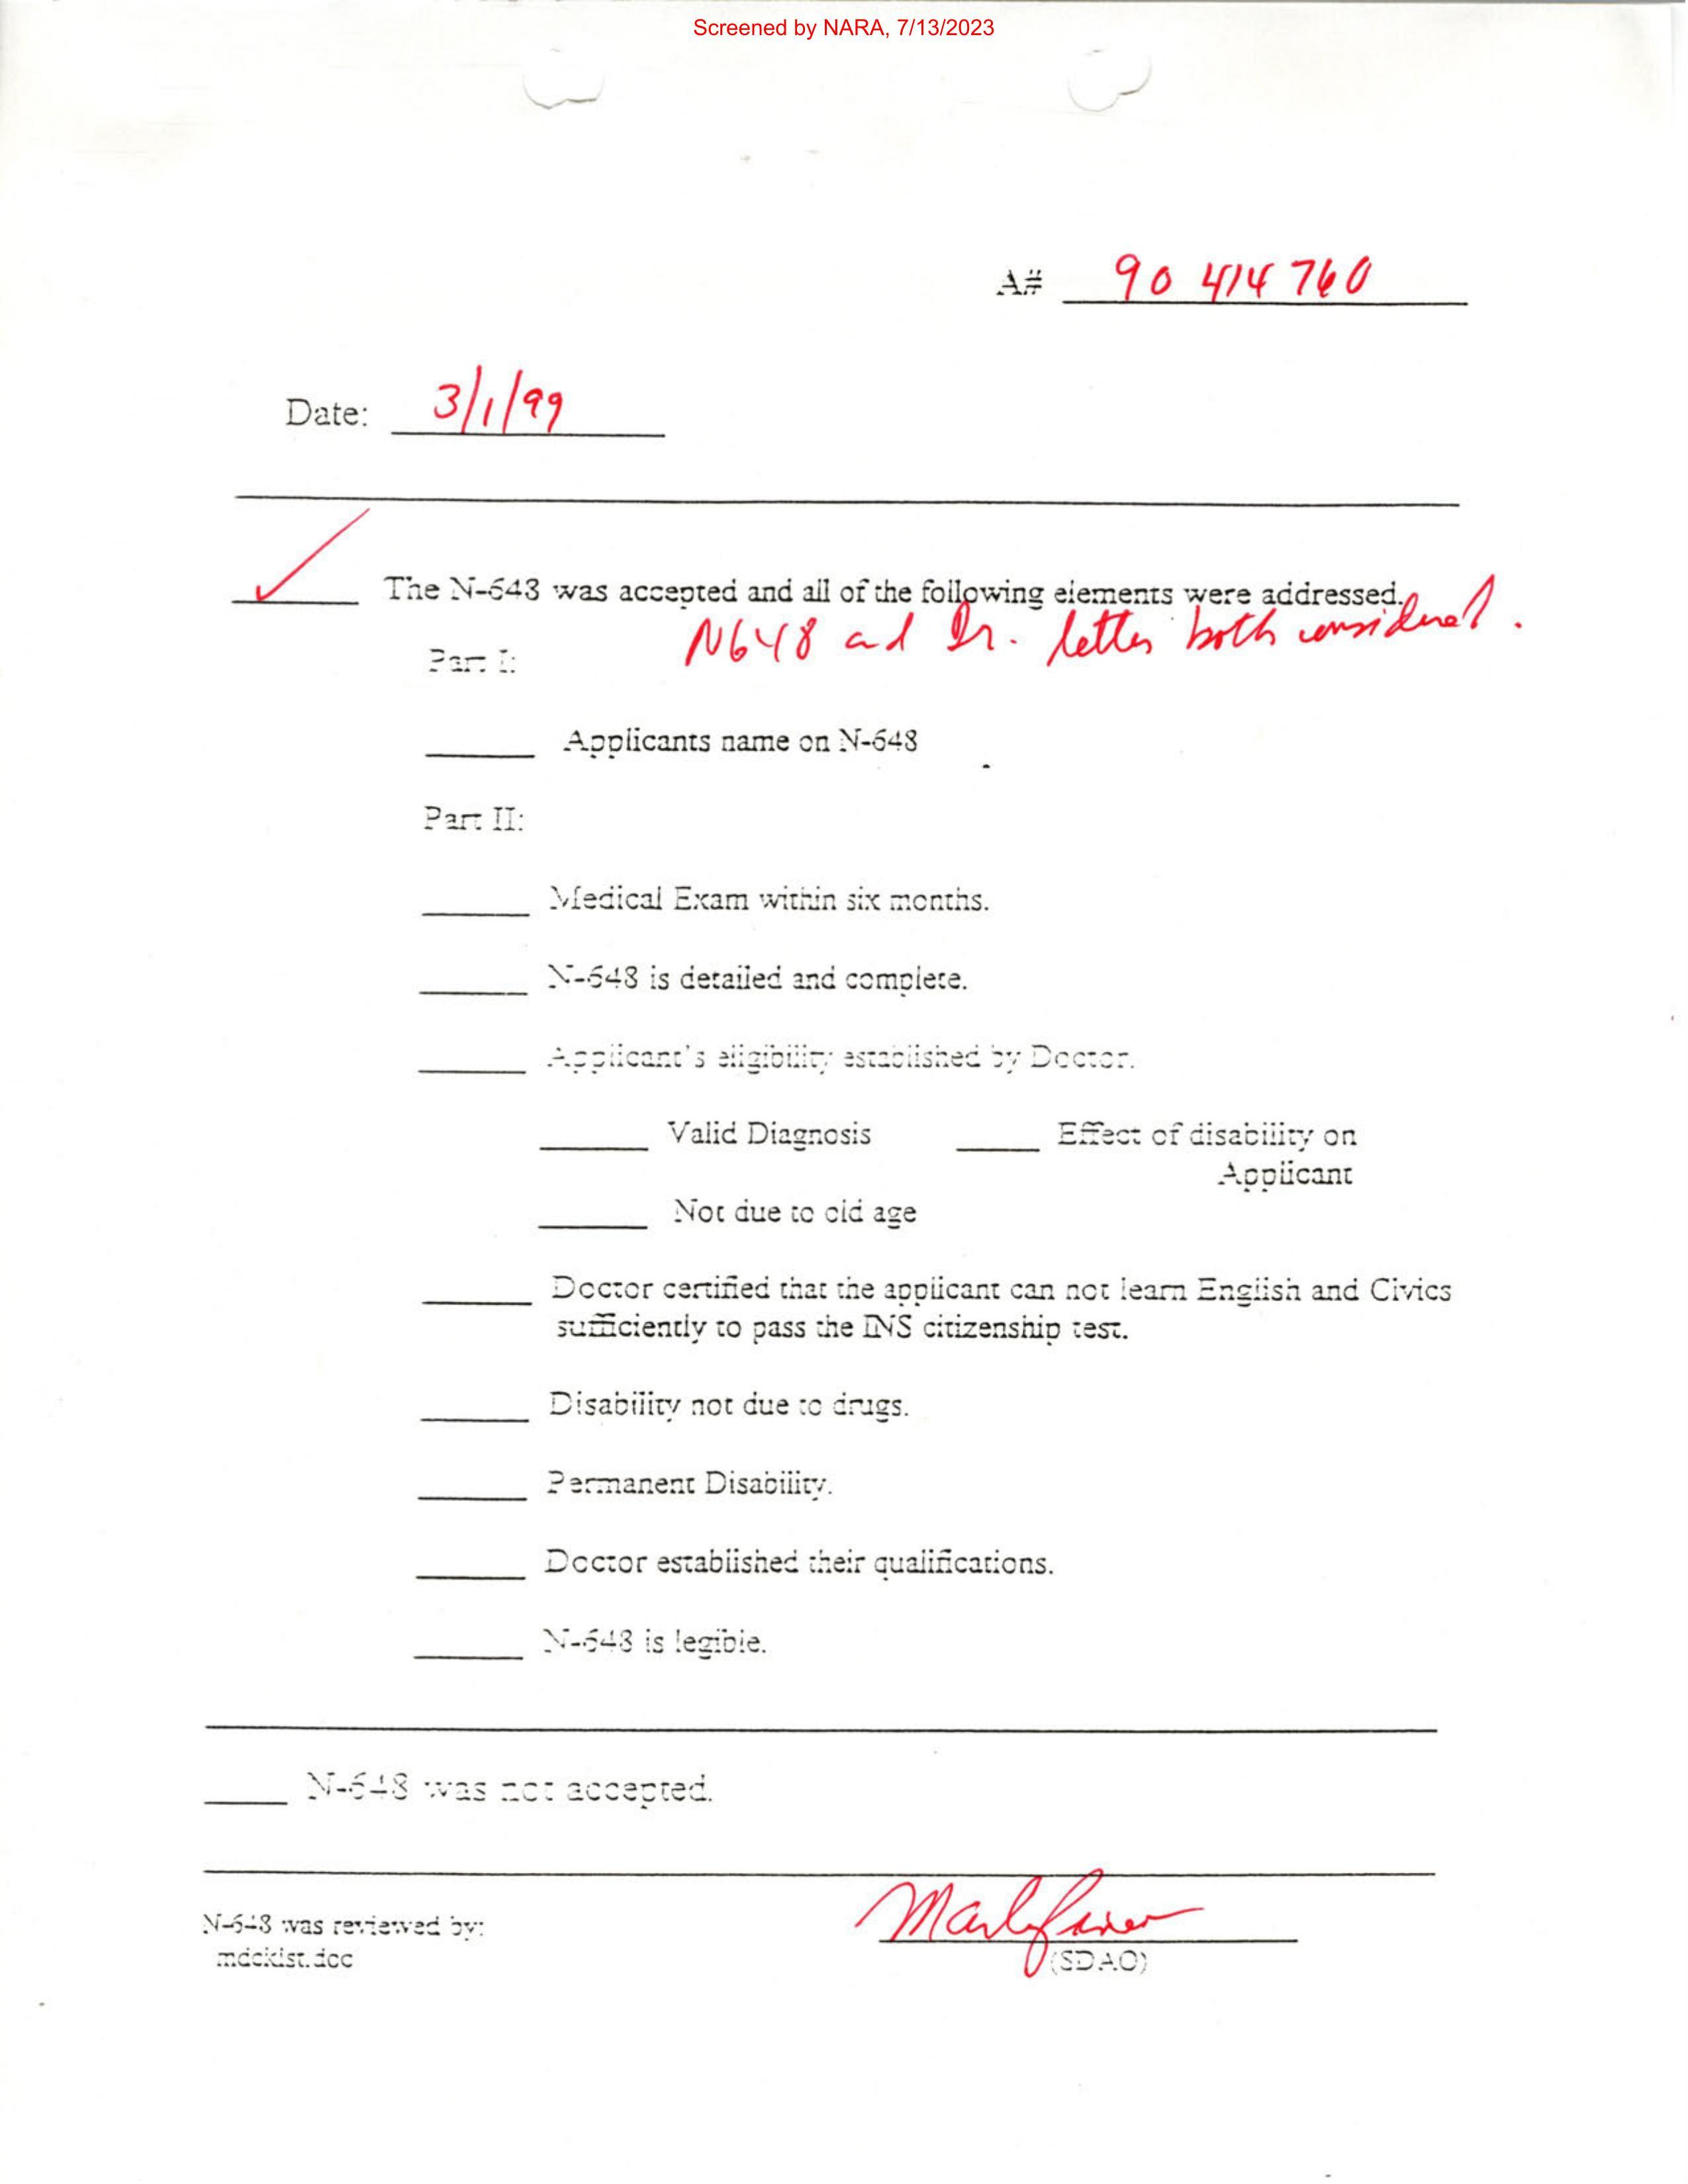 Screened by NARA, 7/13/2023
A# 90 414 760
Date: 3/1/99
The N-648 was accepted and all of the following elements were addressed.
N648 and Dr. letter both considered.
Part I:
Applicants name on N-648
Part II:
Medical Exam within six months.
N-648 is detailed and complete.
Applicant's eligibility established by Doctor.
Valid Diagnosis
Effect of disability on
Applicant
Not due to old age
Doctor certified that the applicant can not learn English and Civics
sufficiently to pass the INS citizenship test.
Disability not due to drugs.
Permanent Disability.
Doctor established their qualifications.
N-648 is legible.
N-648 was not accepted.
N-648 was reviewed by:
(SDAO)
mdcklst.doc